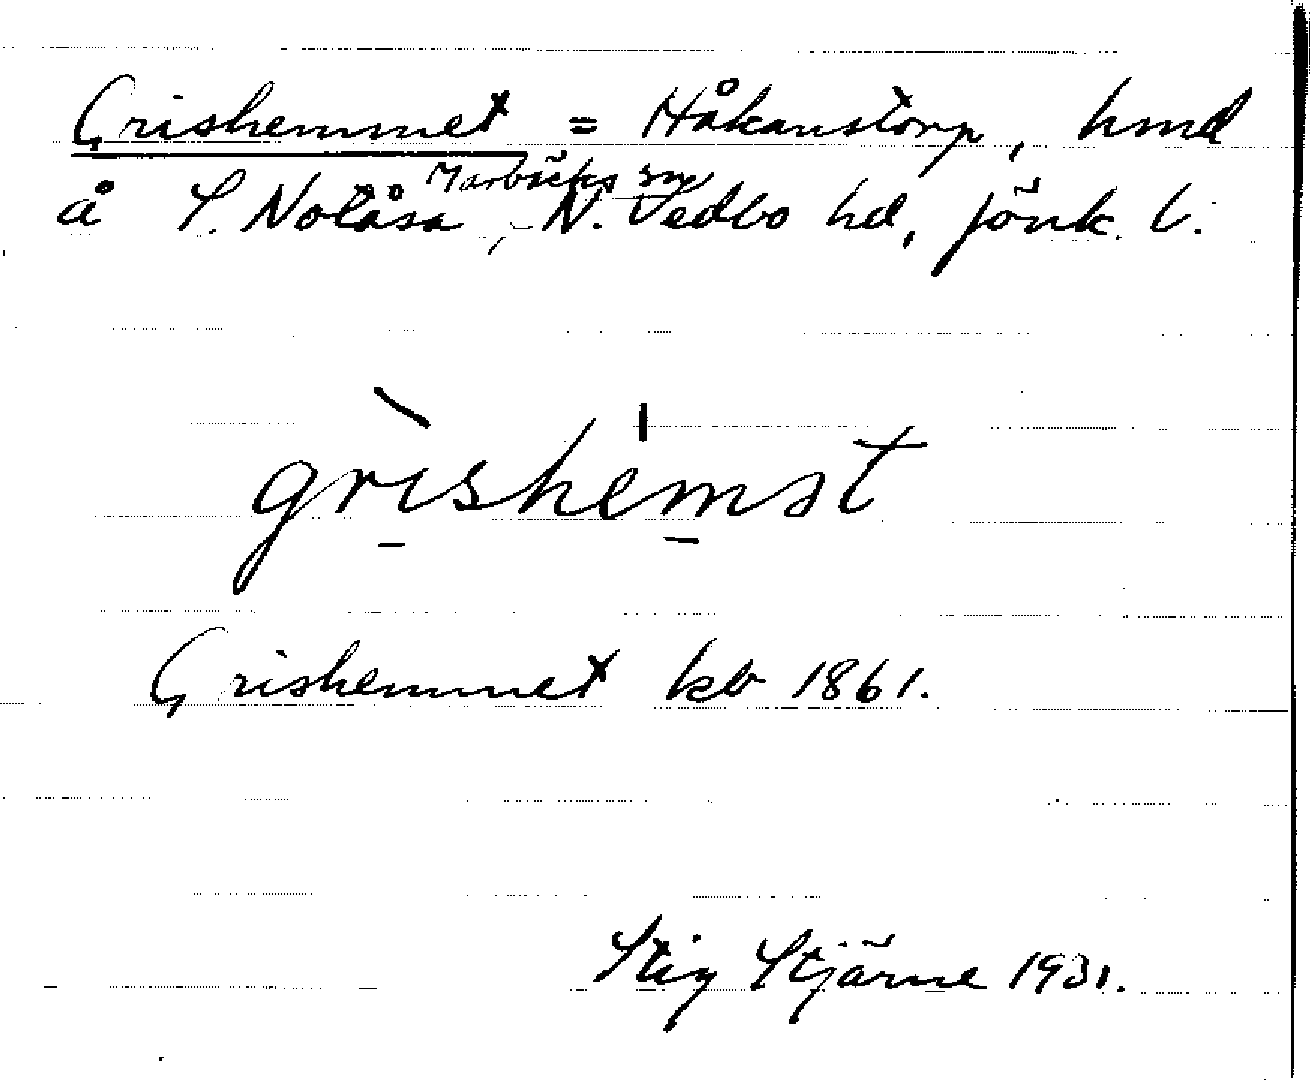 Grishemmet = Håkanstorp, hmd
å S. Nolåsa, Marbäcks sn, N. Vedbo hd, Jönk. l.
grishemət
Grishemmet kb 1861.
Stig Stjärne 1931.